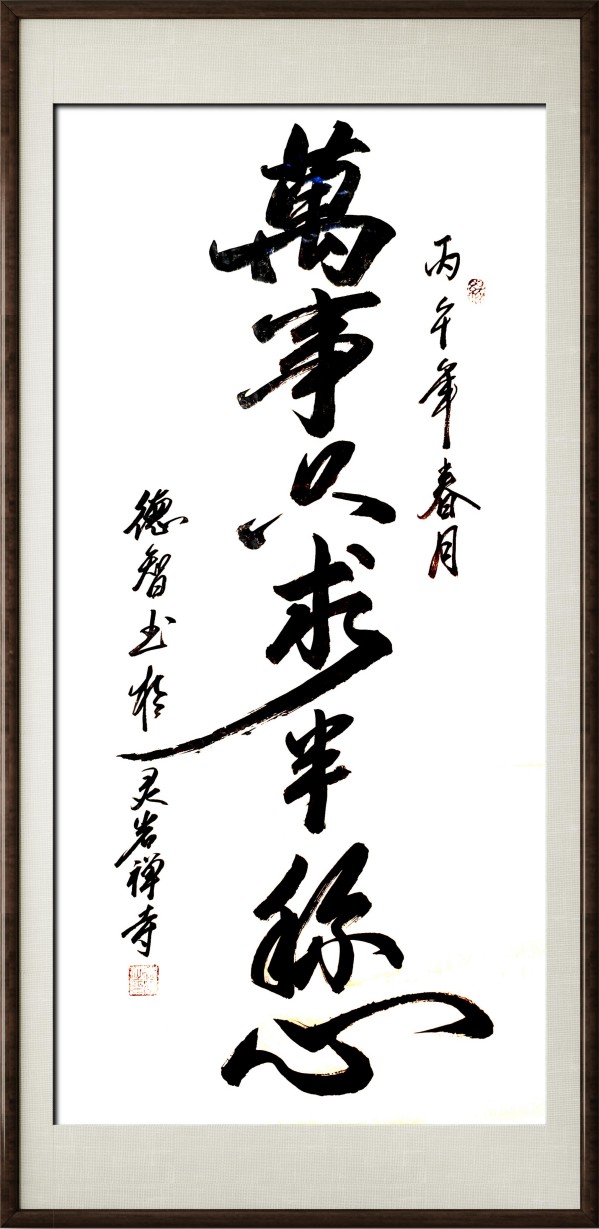 丙午年春月
萬事只求半称心
德智书於灵岩禅寺